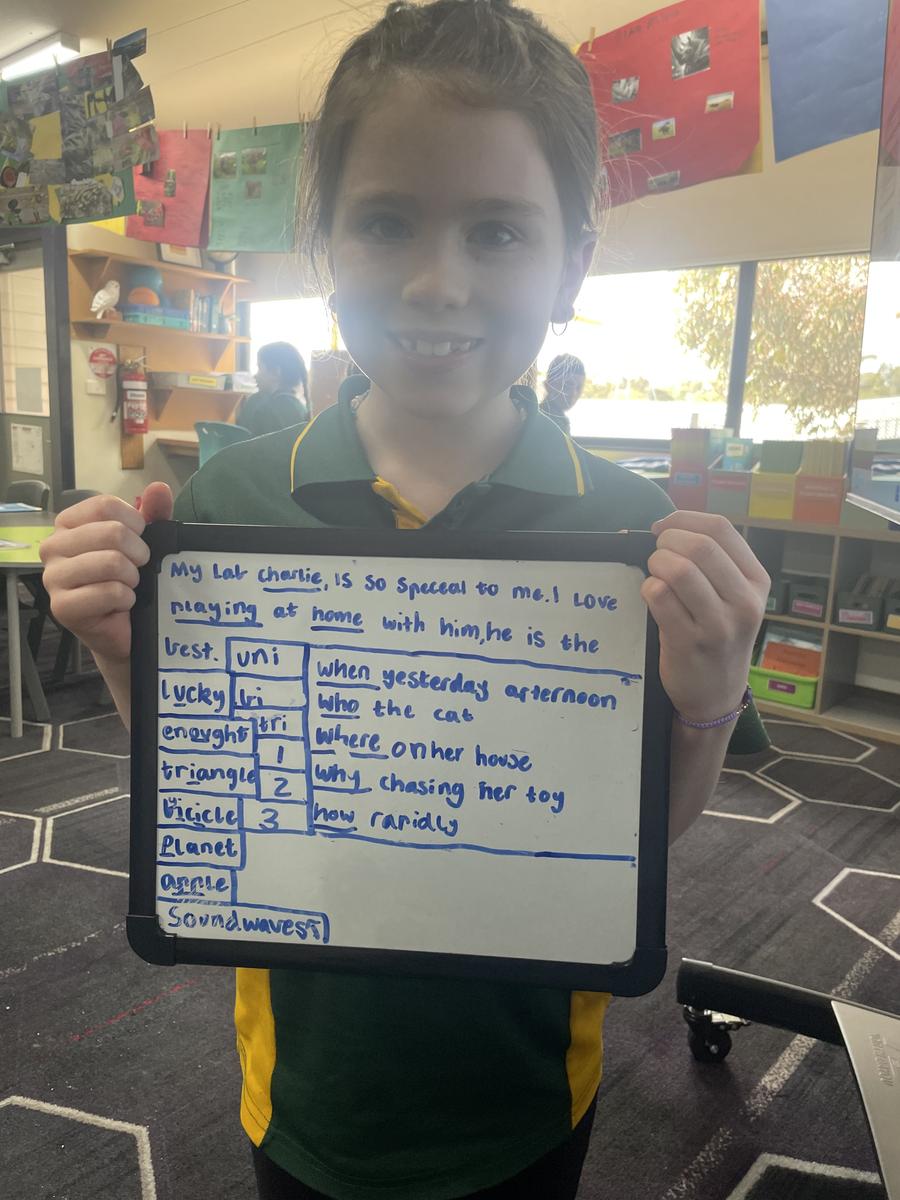 My Lab charlie, is so speceal to me. I Love
playing at home with him, he is the
best.
uni
bi
tri
1
2
3
when yesterday arternoon
who the cat
where on her house
why chasing her toy
how rapidly
lucky
enought
triangle
bicicle
planet
apple
Soundwaves